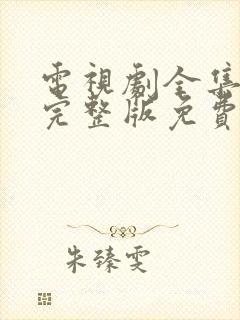 電視劇全集
完整版免費
朱臻雯